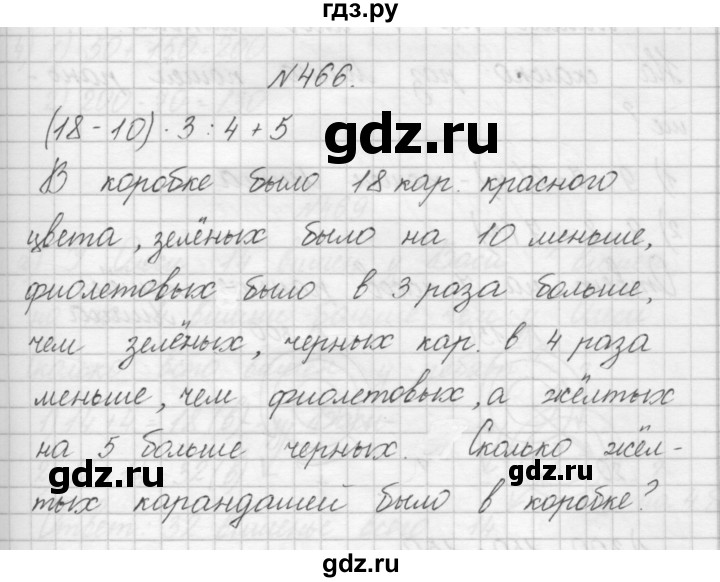 гдз.ру
№466.
(18-10)·3:4+5
gdz.ru
В коробке было 18 кар. красного
цвета, зелёных было на 10 меньше,
фиолетовых было в 3 раза больше,
чем зелёных, черных кар. в 4 раза
меньше, чем фиолетовых, а жёлтых
на 5 больше черных. Сколько жёл-
gdz.ru
gdz.ru
тых карандашей было в коробке?
gdz.ru